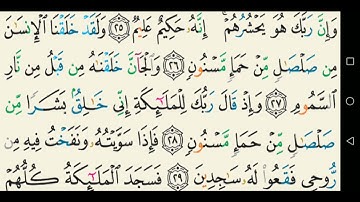 وَإِنَّ رَبَّكَ هُوَ يَحْشُرُهُمْ ۚ إِنَّهُۥ حَكِيمٌ عَلِيمٌ ﴿٢٥﴾ وَلَقَدْ خَلَقْنَا ٱلْإِنسَـٰنَ
مِن صَلْصَـٰلٍ مِّنْ حَمَإٍ مَّسْنُونٍ ﴿٢٦﴾ وَٱلْجَآنَّ خَلَقْنَـٰهُ مِن قَبْلُ مِن نَّارِ
ٱلسَّمُومِ ﴿٢٧﴾ وَإِذْ قَالَ رَبُّكَ لِلْمَلَـٰٓئِكَةِ إِنِّى خَـٰلِقٌۢ بَشَرًا مِّن
صَلْصَـٰلٍ مِّنْ حَمَإٍ مَّسْنُونٍ ﴿٢٨﴾ فَإِذَا سَوَّيْتُهُۥ وَنَفَخْتُ فِيهِ مِن
رُّوحِى فَقَعُوا۟ لَهُۥ سَـٰجِدِينَ ﴿٢٩﴾ فَسَجَدَ ٱلْمَلَـٰٓئِكَةُ كُلُّهُمْ